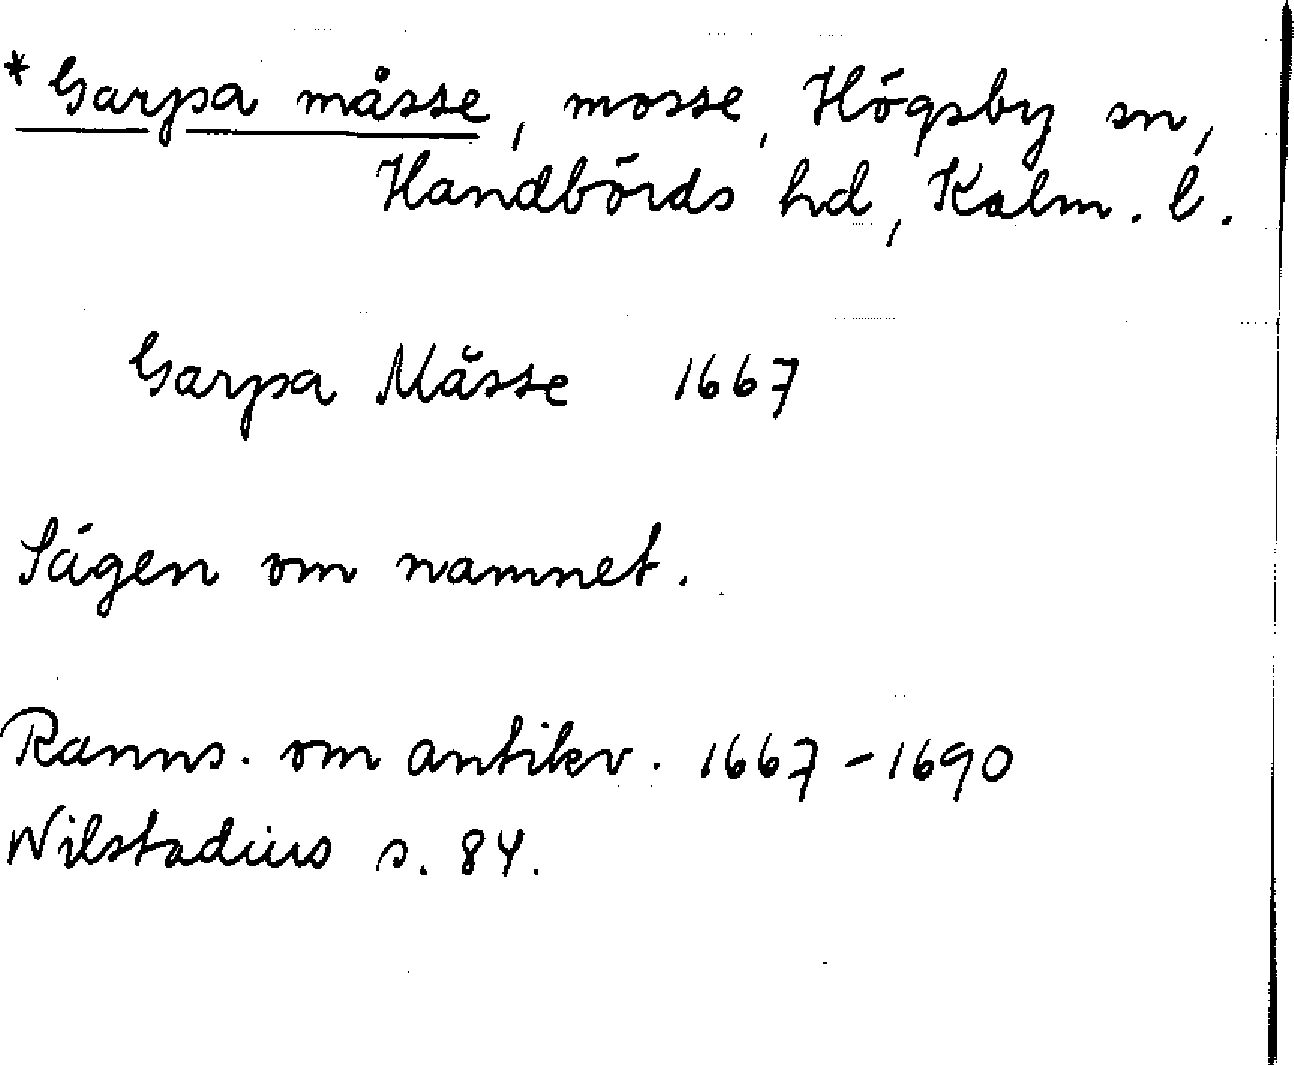 * Garpa måsse, mosse, Högsby sn,
Handbörds hd, Kalm. l.
Garpa Måsse 1667
Sägen om namnet.
Ranns. om antikv. 1667-1690
Nilstadius s. 84.